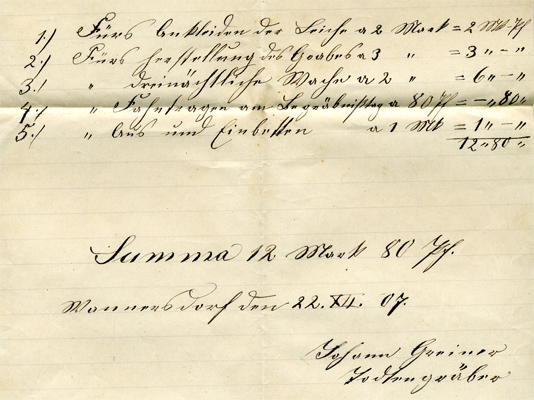 1./ Fürs Ankleiden der Leiche a 2 Mark = 2 Mk - Pf
2./ Fürs herstellung des Grabes a 3 " = 3 " - "
3./ " dreinächtliche Wache a 2 " = 6 " - "
4./ " Fahntragen am Begräbnißtag a 80 Pf = - " 80 "
5./ " Aus und Einbetten a 1 Mk = 1 " - "
12 " 80 "
Summa 12 Mark 80 Pf.
Wannersdorf den 22. XII. 07.
Johann Greiner
Todtengräber